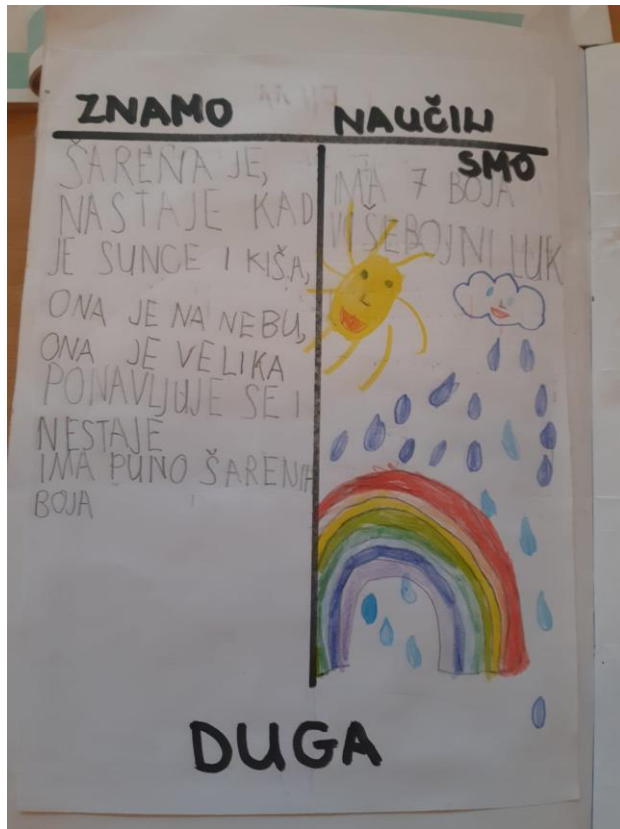 ZNAMO
ŠARENA JE,
NASTAJE KAD
JE SUNCE I KIŠA,
ONA JE NA NEBU,
ONA JE VELIKA
PONAVLJUJE SE I
NESTAJE
IMA PUNO ŠARENIH
BOJA
NAUČILI
SMO
IMA 7 BOJA
VIŠEBOJNI LUK
DUGA